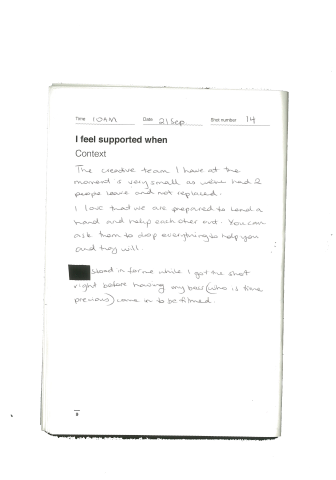 Time 10AM Date 21 Sep Shot number 14
I feel supported when
Context
The creative team I have at the
moment is very small as we've had 2
people leave and not replaced.
I love that we are prepared to lend a
hand and help each other out. You can
ask them to drop everything to help you
and they will.
stood in for me while I got the shot
right before having my boss (who is time
precious) come in to be filmed.
8